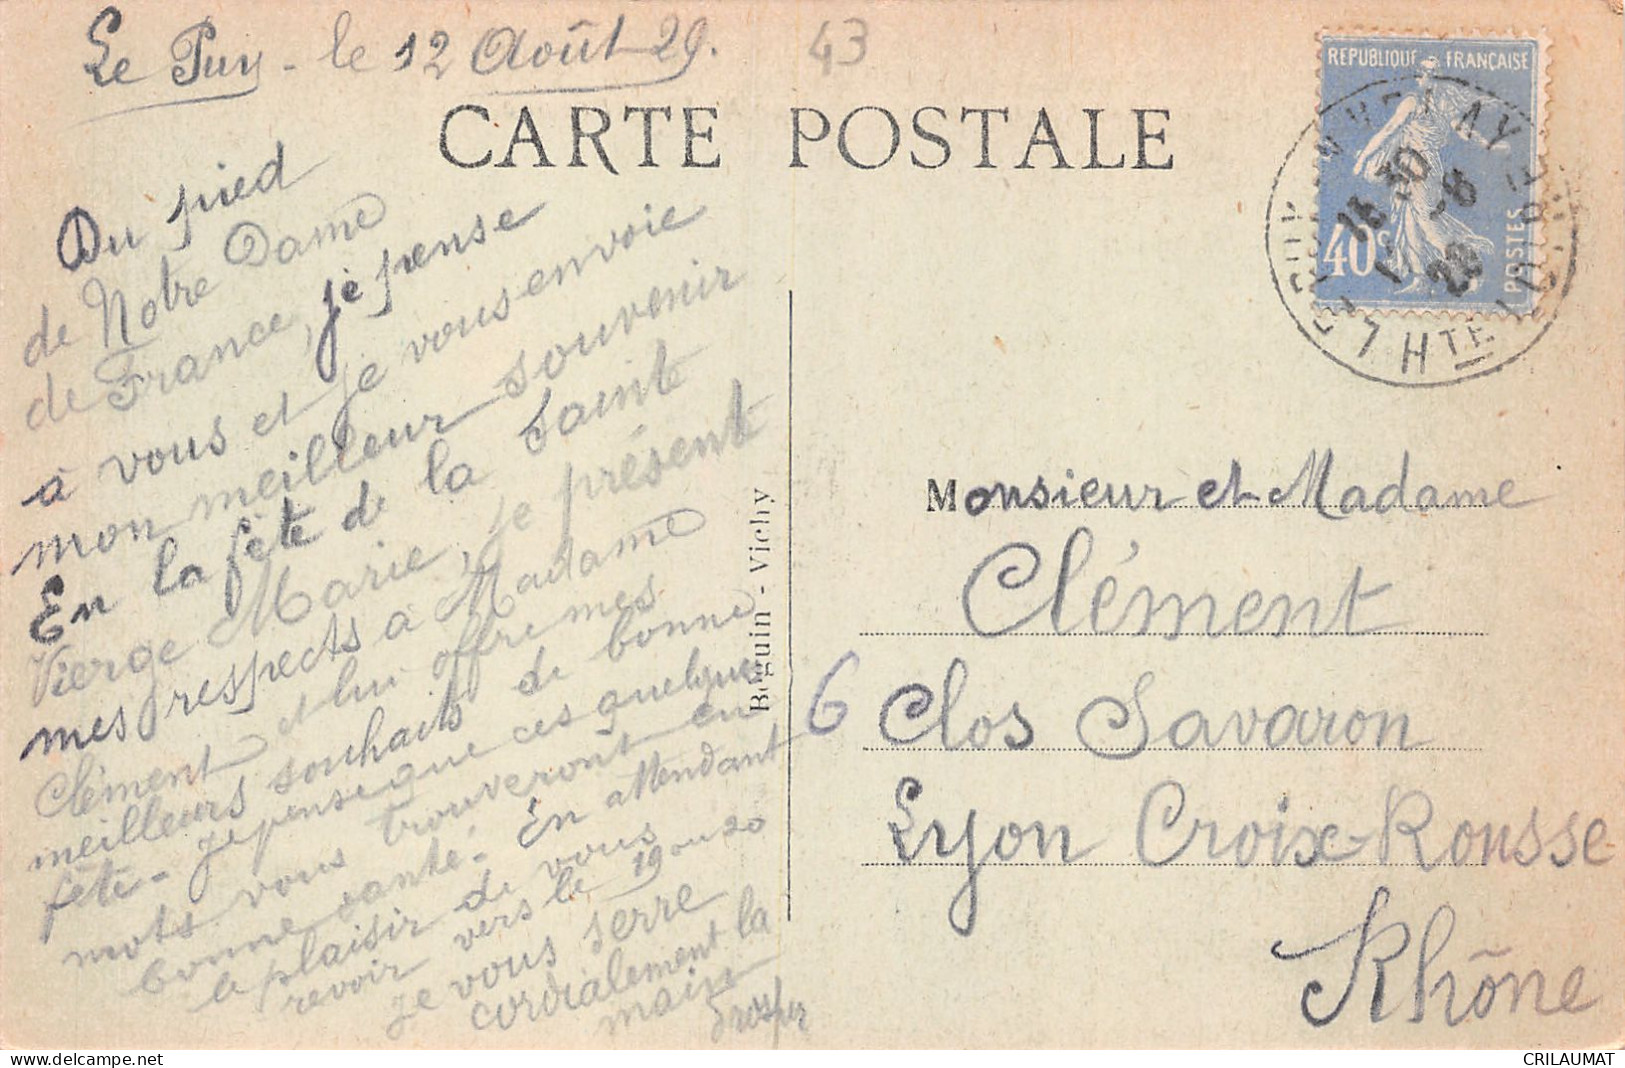 Le Puy - le 12 Août 29.
43
CARTE POSTALE
REPUBLIQUE FRANÇAISE
40c
POSTES
LE PUY EN VELAY
18 30
-8
29
HTE LOIRE
Du pied
de Notre Dame
de France, je pense
à vous et je vous envoie
mon meilleur souvenir
En la fête de la Sainte
Vierge Marie, je présente
mes respects à Madame
Clément et lui offre mes
meilleurs souhaits de bonne
fête - je pense que ces quelques
mots vous trouveront en
bonne santé - En attendant
le plaisir de vous
revoir vers le 19 ou 20
je vous serre
cordialement la
main
Prosper
Béguin - Vichy
Monsieur et Madame
Clément
6 Clos Savaron
Lyon Croix-Rousse
Rhône
CRILAUMAT